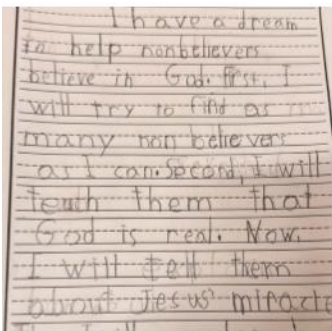 I have a dream
to help nonbelievers
believe in God. First, I
will try to find as
many non believers
as I can. Second, I will
teach them that
God is real. Now,
I will tell them
about Jesus' miracle